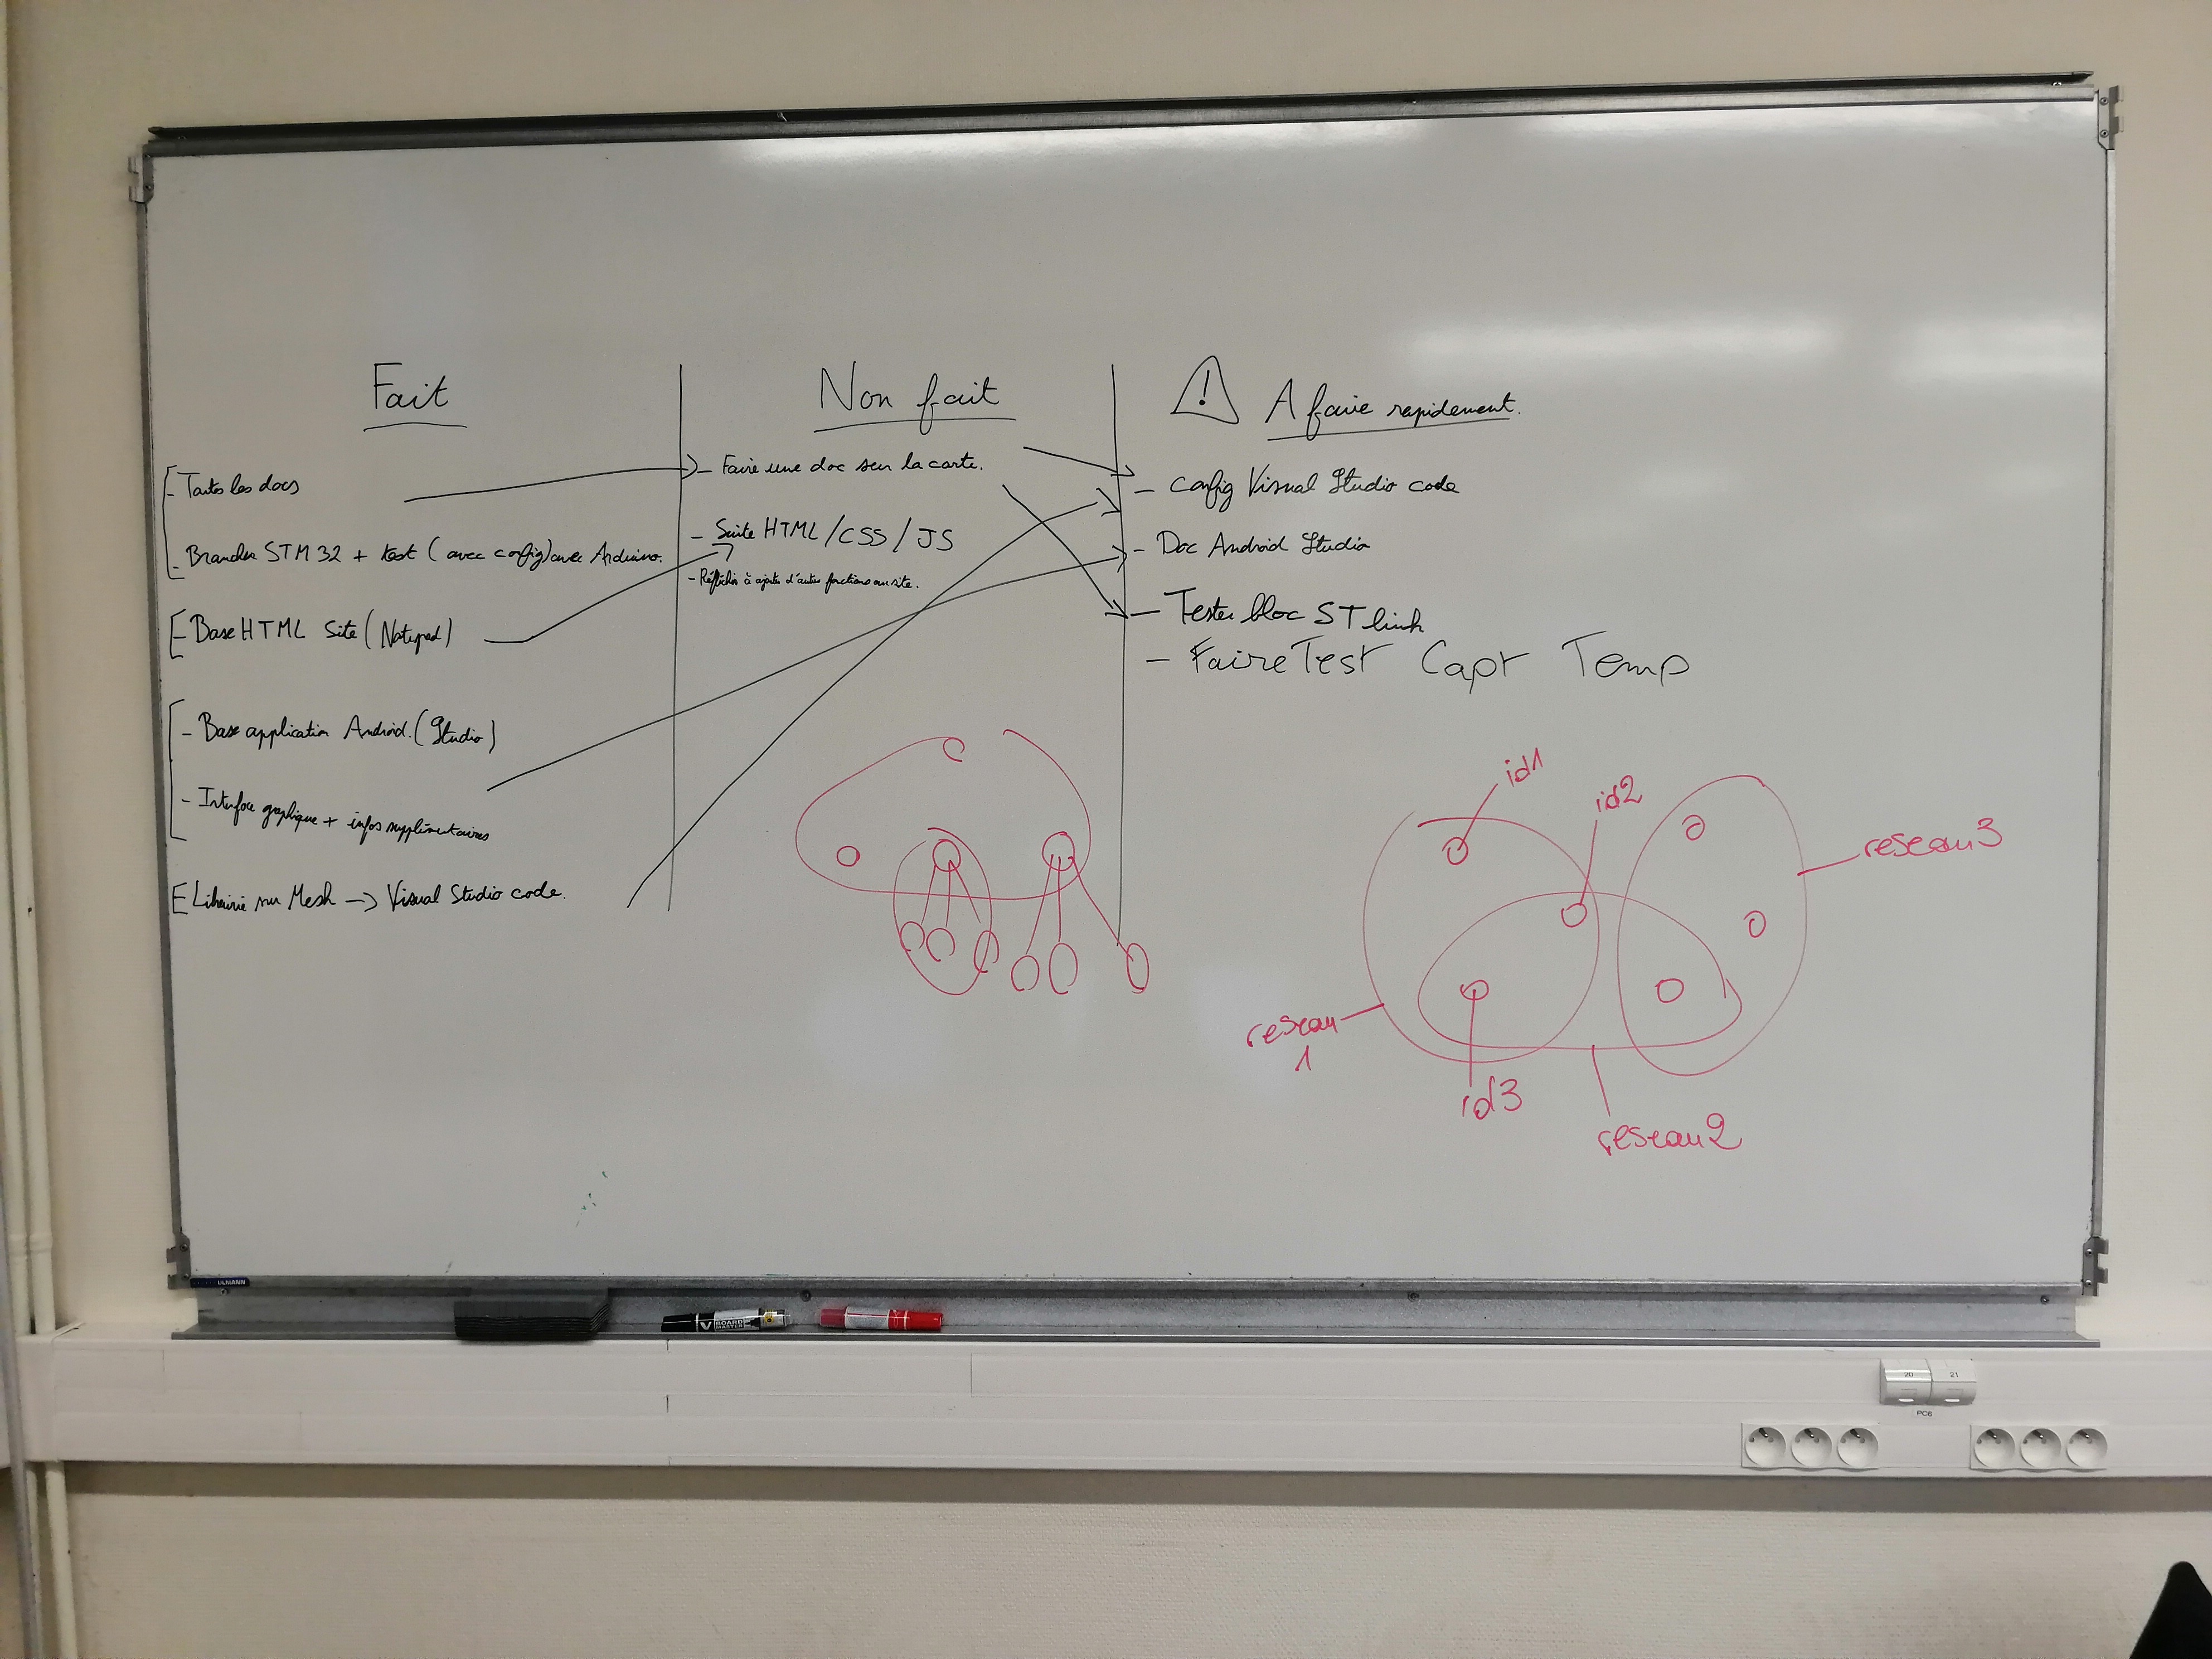 Fait
- Toutes les docs
- Brancher STM 32 + test (avec config) avec Arduino.
- Base HTML Site (Notepad)
- Base application Android. (Studio)
- Interface graphique + infos supplémentaires
- Librairie sur Mesh -> Visual Studio code.
Non fait
- Faire une doc sur la carte.
- Suite HTML / CSS / JS
- Réfléchir à ajouter d'autres fonctions au site.
! A faire rapidement.
- Config Visual Studio code
- Doc Android Studio
- Tester bloc ST link
- Faire Test Capt Temp
id1
id2
reseau3
reseau
1
id3
reseau2
ULMANN
V BOARD
MASTER
20
21
PC6